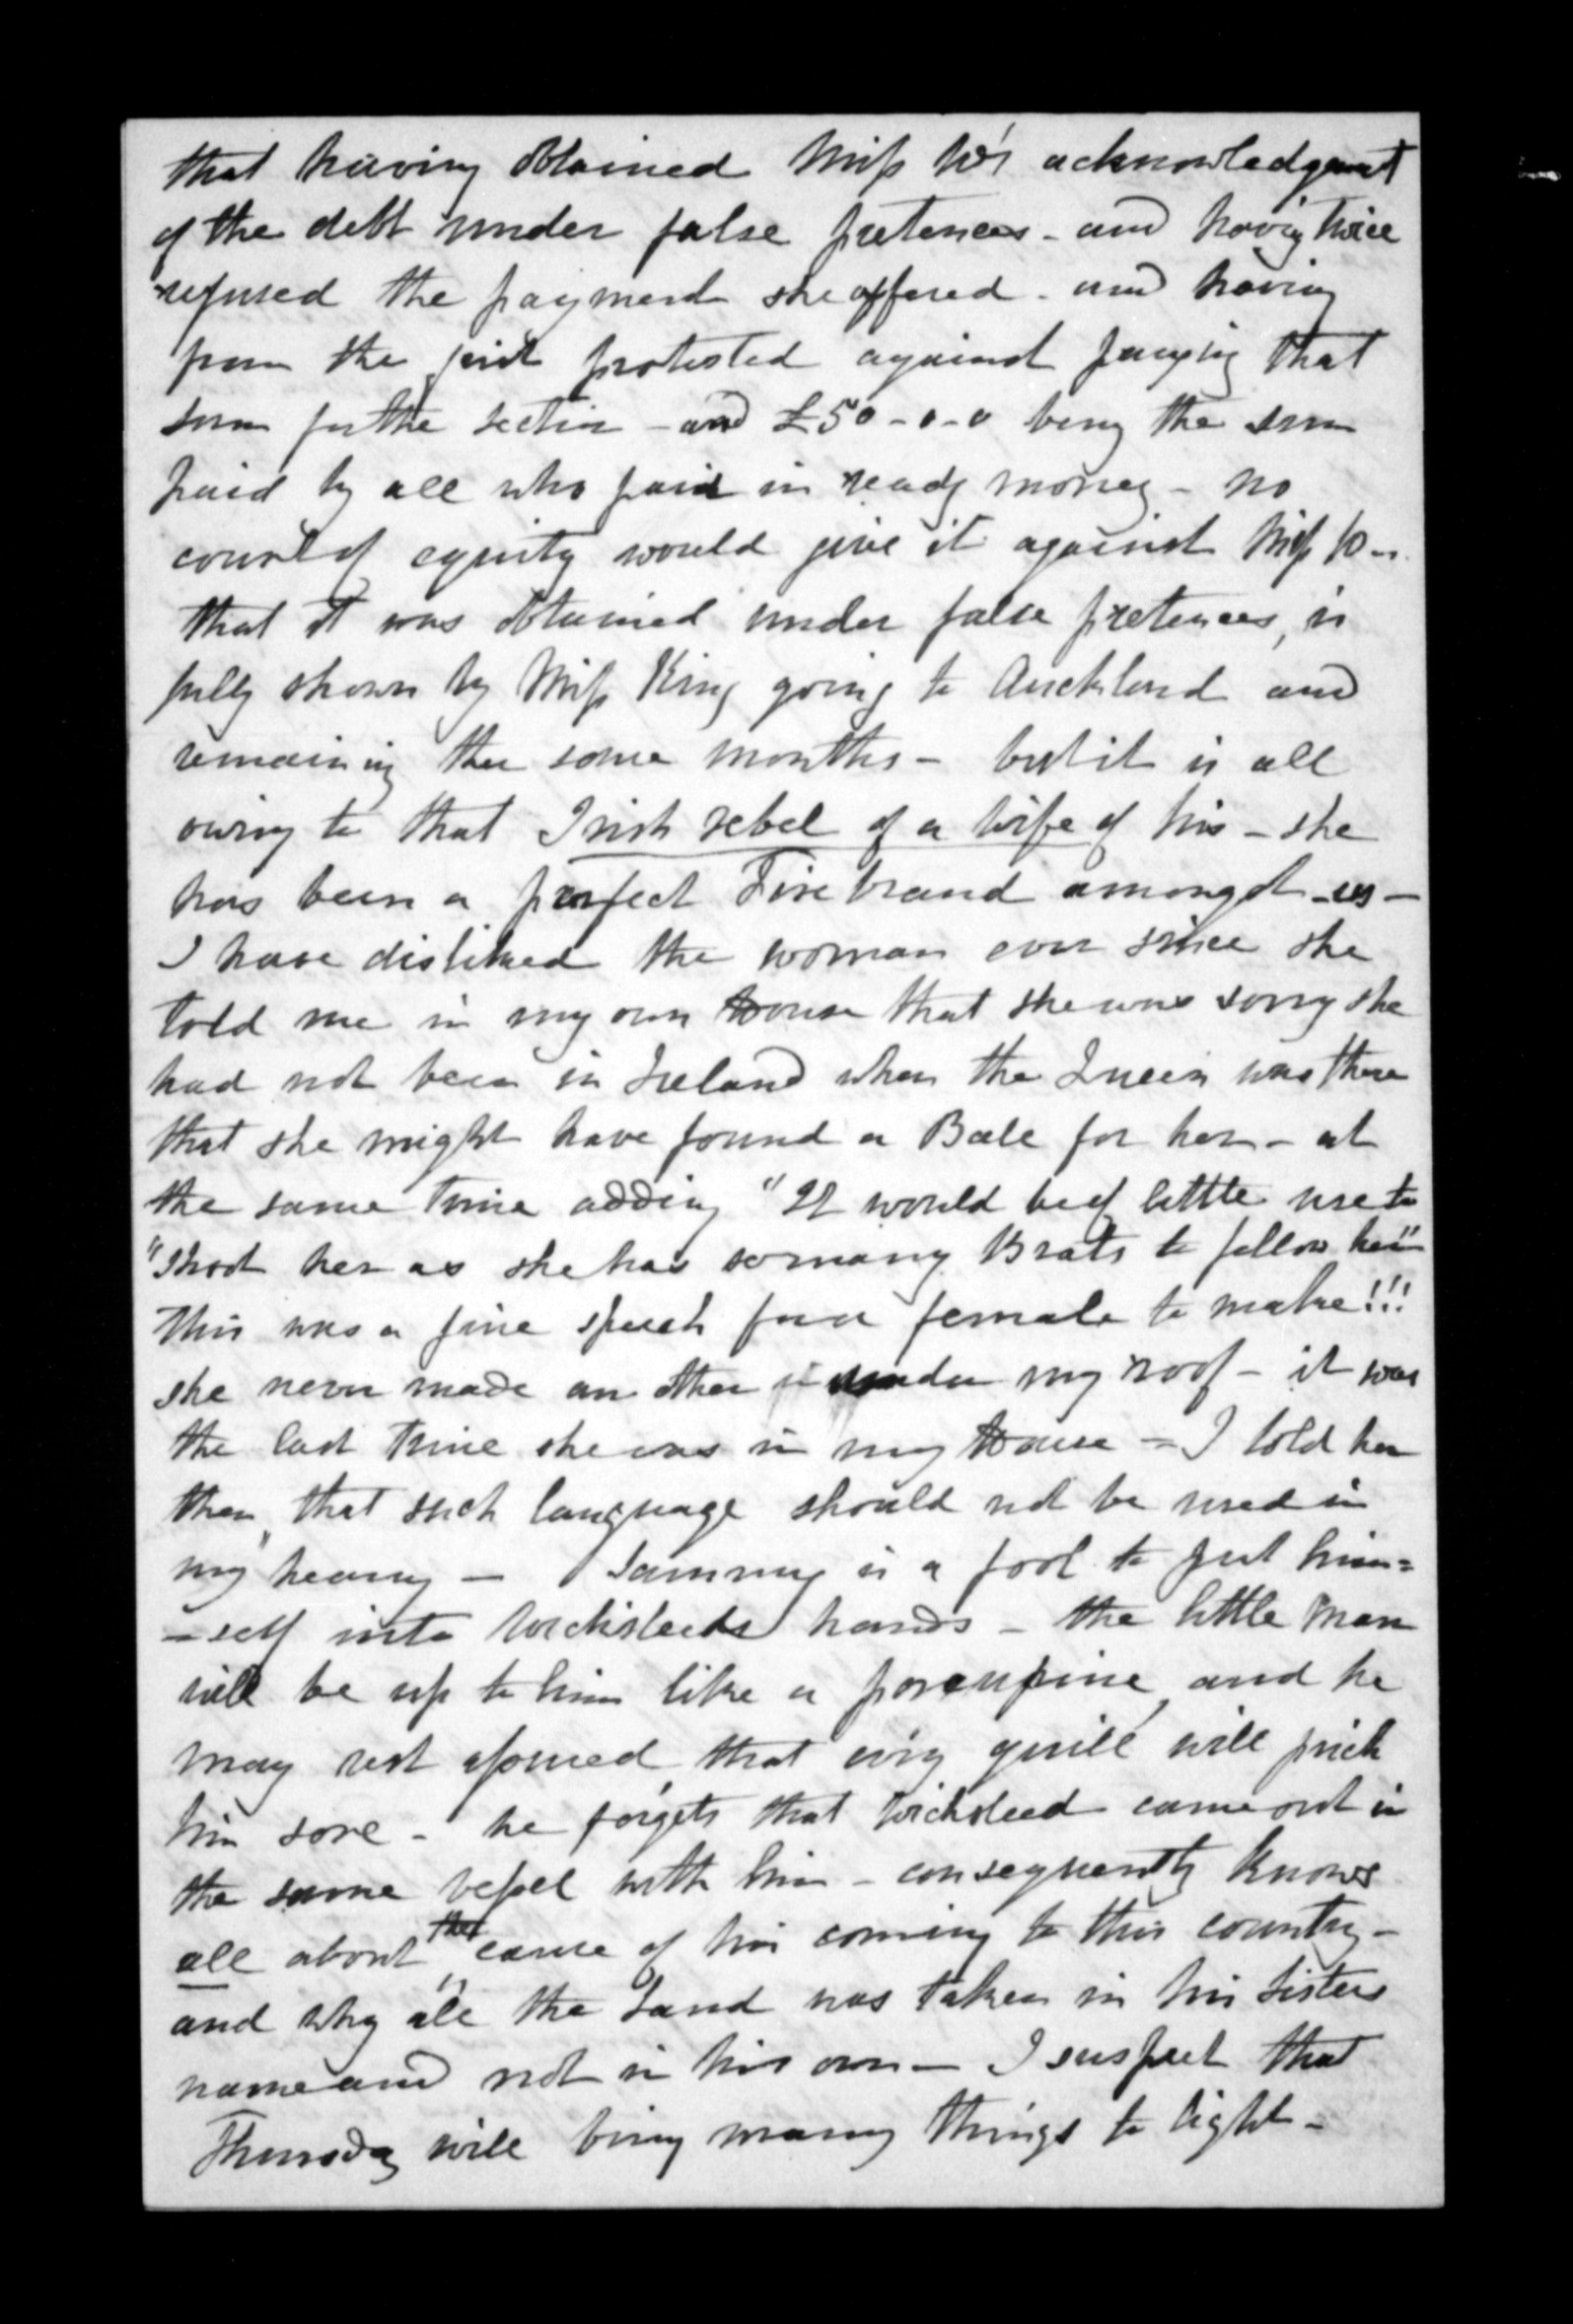 that having obtained Miss K's acknowledgment
of the debt under false pretences - and having twice
refused the payment she offered - and having
from the first protested against paying that
sum for the section - and £50-0-0 being the sum
paid by all who paid in ready money - no
court of equity would give it against Miss K -
that it was obtained under false pretences, is
fully shown by Miss King going to Auckland and
remaining there some months - but it is all
owing to that Irish rebel of a wife of his - she
has been a perfect Fire brand amongst us -
I have disliked the woman ever since she
told me in my own House that she was sorry she
had not been in Ireland when the Queen was there
that she might have found a Ball for her - at
the same time adding "It would be of little use to
"shoot her as she has so many Brats to follow her"
This was a fine speech for a female to make!!!
she never made an other under my roof - it was
the last time she was in my House = I told her
then, that such language should not be used in
my hearing - Sammy is a fool to put him=
-self into Wicksteeds hands - the little man
will be up to him like a porcupine, and he
may rest assured, that ev'ry quill will prick
him sore - he forgets that Wicksteed came out in
the same vessel with him - consequently knows
all about the cause of his coming to this country -
and why all the Land was taken in his sisters
name and not in his own - I suspect that
Thursday will bring many things to light -